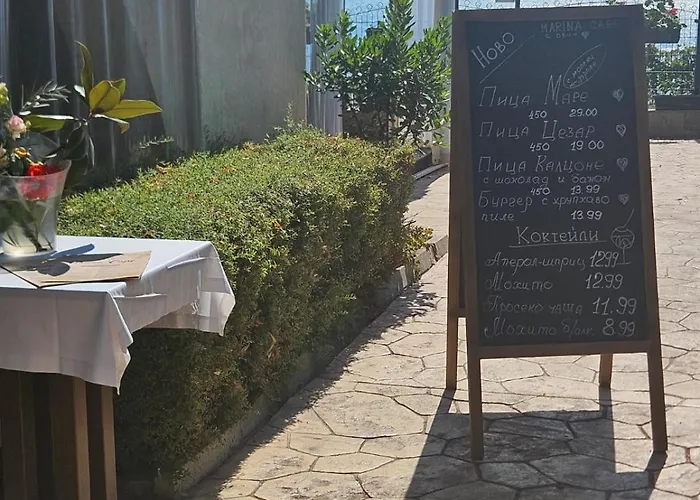 Ново
MARINA CAFE
Пица Маре
450 29.00
Пица Цезар
450 19.00
Пица Калцоне
с шоколад и банан
450 13.99
Бургер с хрупкаво
пиле 13.99
Коктейли
Аперол-шприц 12.99
Мохито 12.99
Просеко чаша 11.99
Мохито б/алк. 8.99